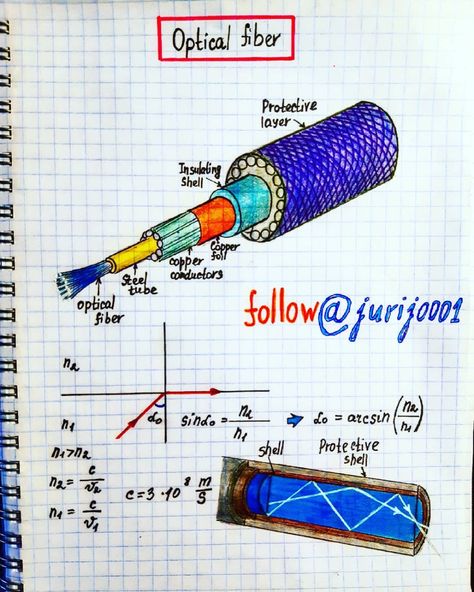 Optical fiber
Protective
layer
Insulating
shell
Copper
foil
copper
conductors
Steel
tube
optical
fiber
follow@jurij0001
n₂
n₁
α₀
sinα₀ = n₂/n₁ ➡ α₀ = arcsin(n₂/n₁)
n₁>n₂
n₂ = c/v₂
n₁ = c/v₁
c = 3·10⁸ m/s
shell
Protective
shell